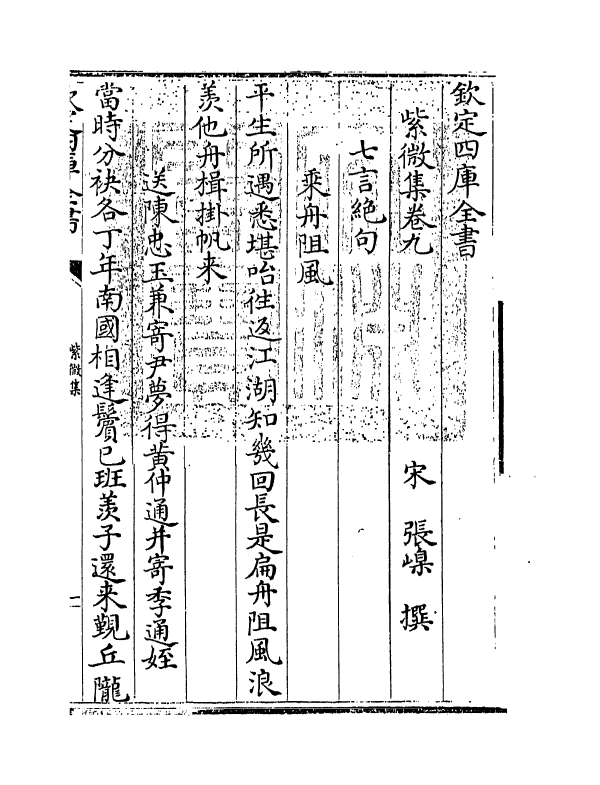 欽定四庫全書
紫微集卷九
宋 張嵲 撰
七言絶句
乘舟阻風
平生所遇悉堪咍往返江湖知幾回長是扁舟阻風浪
羨他舟楫掛帆来
送陳忠玉兼寄尹夢得黄仲通并寄季通姪
當時分袂各丁年南國相逢鬢已班羨子還来覲丘隴
欽定四庫全書
紫微集
一